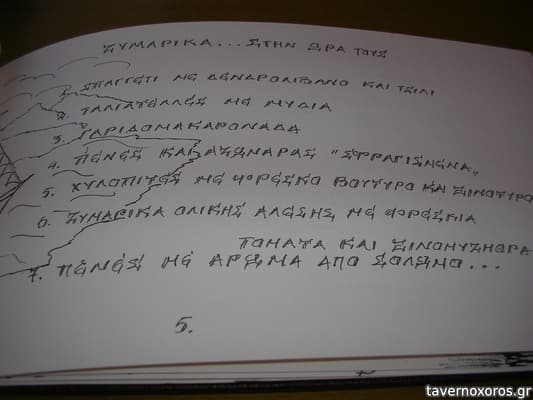 ΖΥΜΑΡΙΚΑ... ΣΤΗΝ ΩΡΑ ΤΟΥΣ
1. ΣΠΑΓΓΕΤΙ ΜΕ ΔΕΝΔΡΟΛΙΒΑΝΟ ΚΑΙ ΤΣΙΛΙ
2. ΤΑΛΙΑΤΕΛΛΕΣ ΜΕ ΜΥΔΙΑ
3. ΓΑΡΙΔΟΜΑΚΑΡΟΝΑΔΑ
4. ΠΕΝΕΣ ΚΑΙ ΑΣΩΝΑΡΑΣ "ΣΤΡΑΓΓΙΣΜΕΝΑ„
5. ΧΥΛΟΠΙΤΕΣ ΜΕ ΦΡΕΣΚΟ ΒΟΥΤΥΡΟ ΚΑΙ ΞΙΝΟΤΥΡΟ
6. ΖΥΜΑΡΙΚΑ ΟΛΙΚΗΣ ΑΛΕΣΗΣ ΜΕ ΦΡΕΣΚΙΑ
ΤΟΜΑΤΑ ΚΑΙ ΞΙΝΟΜΥΖΗΘΡΑ
7. ΠΕΝΕΣ ΜΕ ΑΡΩΜΑ ΑΠΟ ΣΟΛΩΜΟ...
5.
tavernoxoros.gr